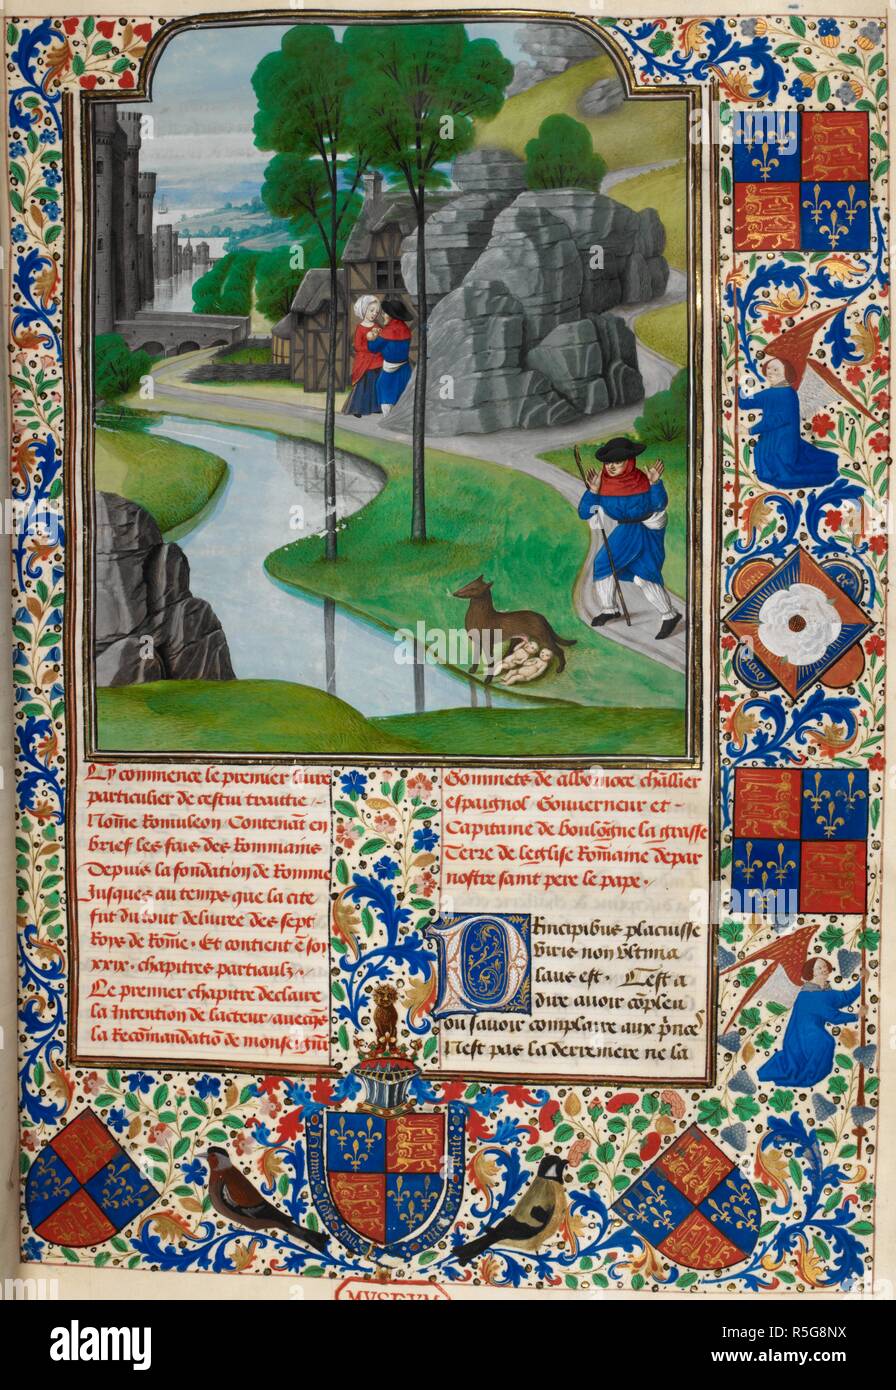 Cy commence le premier liure
particulier de cestui traittie
Nõme Romuleon Contenãt en
brief les fais des Rommains
Depuis la fondation de Romme
Jusques au temps que la cite
fut du tout deliuree des sept
Roys de Rõme. Et contient ẽ soy
xxix. chapitres partiaulz.
Le premier chapitre declaire
la Intention de lacteur auecq̃s
la Recõmandatiõ de monseignr̃
Gommets de albornoce challier
espaignol Gouuerneur et
Capitaine de boulõgne la grasse
Terre de leglise Rõmaine depar
nostre saint pere le pape.
PRincipibus placuisse
Viris non vltima
laus est. Cest a
dire auoir cõpleu
ou sauoir complaire aux p̃nces
Nest pas la derreniere ne la
dieu et
droit
MVSEVM
a alamy stock photo
alamy
Image ID: R5G8NX
www.alamy.com